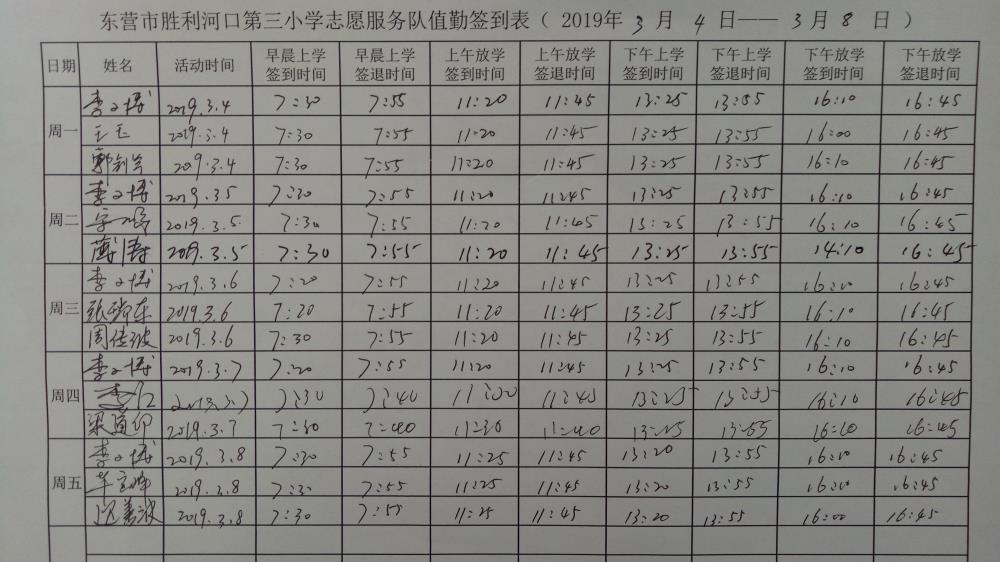 东营市胜利河口第三小学志愿服务队值勤签到表（2019年 3 月 4 日——3月 8 日）
日期 姓名 活动时间 早晨上学签到时间 早晨上学签退时间 上午放学签到时间 上午放学签退时间 下午上学签到时间 下午上学签退时间 下午放学签到时间 下午放学签退时间
李文博 2019.3.4 7:30 7:55 11:20 11:45 13:25 13:55 16:10 16:45
周一 王玉 2019.3.4 7:30 7:55 11:20 11:45 13:25 13:55 16:00 16:45
2019.3.4 7:30 7:55 11:20 11:45 13:25 13:55 16:10 16:45
李文博 2019.3.5 7:30 7:55 11:20 11:45 13:25 13:55 16:10 16:45
周二 2019.3.5. 7:30 7:55 11:20 11:45 13:25 13:55 16:10 16:45
薄涛 2019.3.5 7:30 7:55 11:20 11:45 13:25 13:55 16:45
李文博 2019.3.6 7:20 7:55 11:20 11:45 13:25 13:55 16:45
周三 2019.3.6 7:20 7:55 11:20 11:45 13:25 13:55 16:10 16:45
2019.3.6 7:30 7:55 11:20 11:45 13:25 13:55 16:10 16:45
李文博 2019.3.7 7:20 7:55 11:20 11:45 13:25 13:55 16:10 16:45
周四 7:30 7:40 11:45 13:25 16:10 16:45
梁道 2019.3.7 7:30 7:40 11:30 11:40 13:25 13:55 16:10 16:45
李文博 2019.3.8 7:30 7:55 11:25 11:45 13:20 13:55 16:10 16:45
周五 2019.3.8 7:30 7:55 11:25 11:45 13:20 13:55 16:45
2019.3.8 7:30 7:55 11:25 11:45 13:20 13:55 16:00 16:45